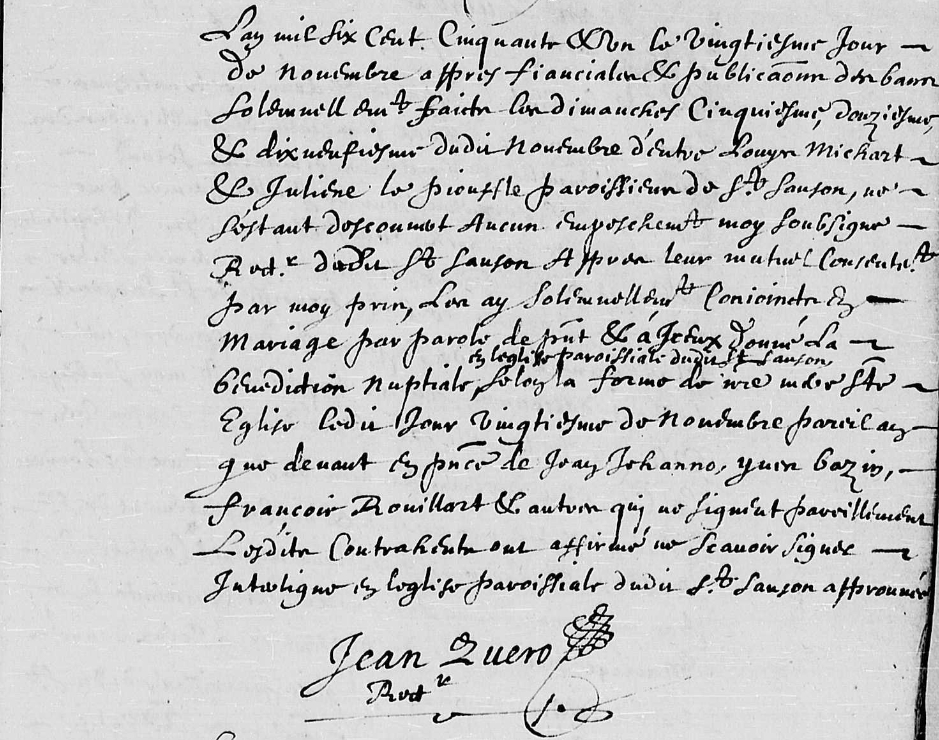 Lan mil six Cent Cinquante & Un le vingtiesme Jour
de Novembre appres fianciales & publicaõns des bans
Solemnellemt faicts les dimanches Cinquiesme, douziesme,
& dixneufiesme dudit Novembre d'entre Louys Michart
& Juliene le pioufle paroissiens de St Sanson, ne
s'estant descouvert Aucun empeschemt moy soubsigne
Rectr dudit St Sanson Appres leur mutuel Consentemt
par moy prins, Les ay solemnellemt Conjoincts en
Mariage par parole de pñt & à Jceux donné La
en leglise paroissiale dudit St Sanson
bénédiction Nuptiale, selon la forme de nre mère Ste
Eglise ledit Jour vingtiesme de Novembre pareil an
que devant en pñce de Jean Johanno, yven bazin,
francois Rouillart & autres qui ne signent pareillement
Lesdits Contrahents ont affirmé ne scavoir signer
Interligne en leglise paroissiale dudit St Sanson approuvée
Jean Quero
Rectr